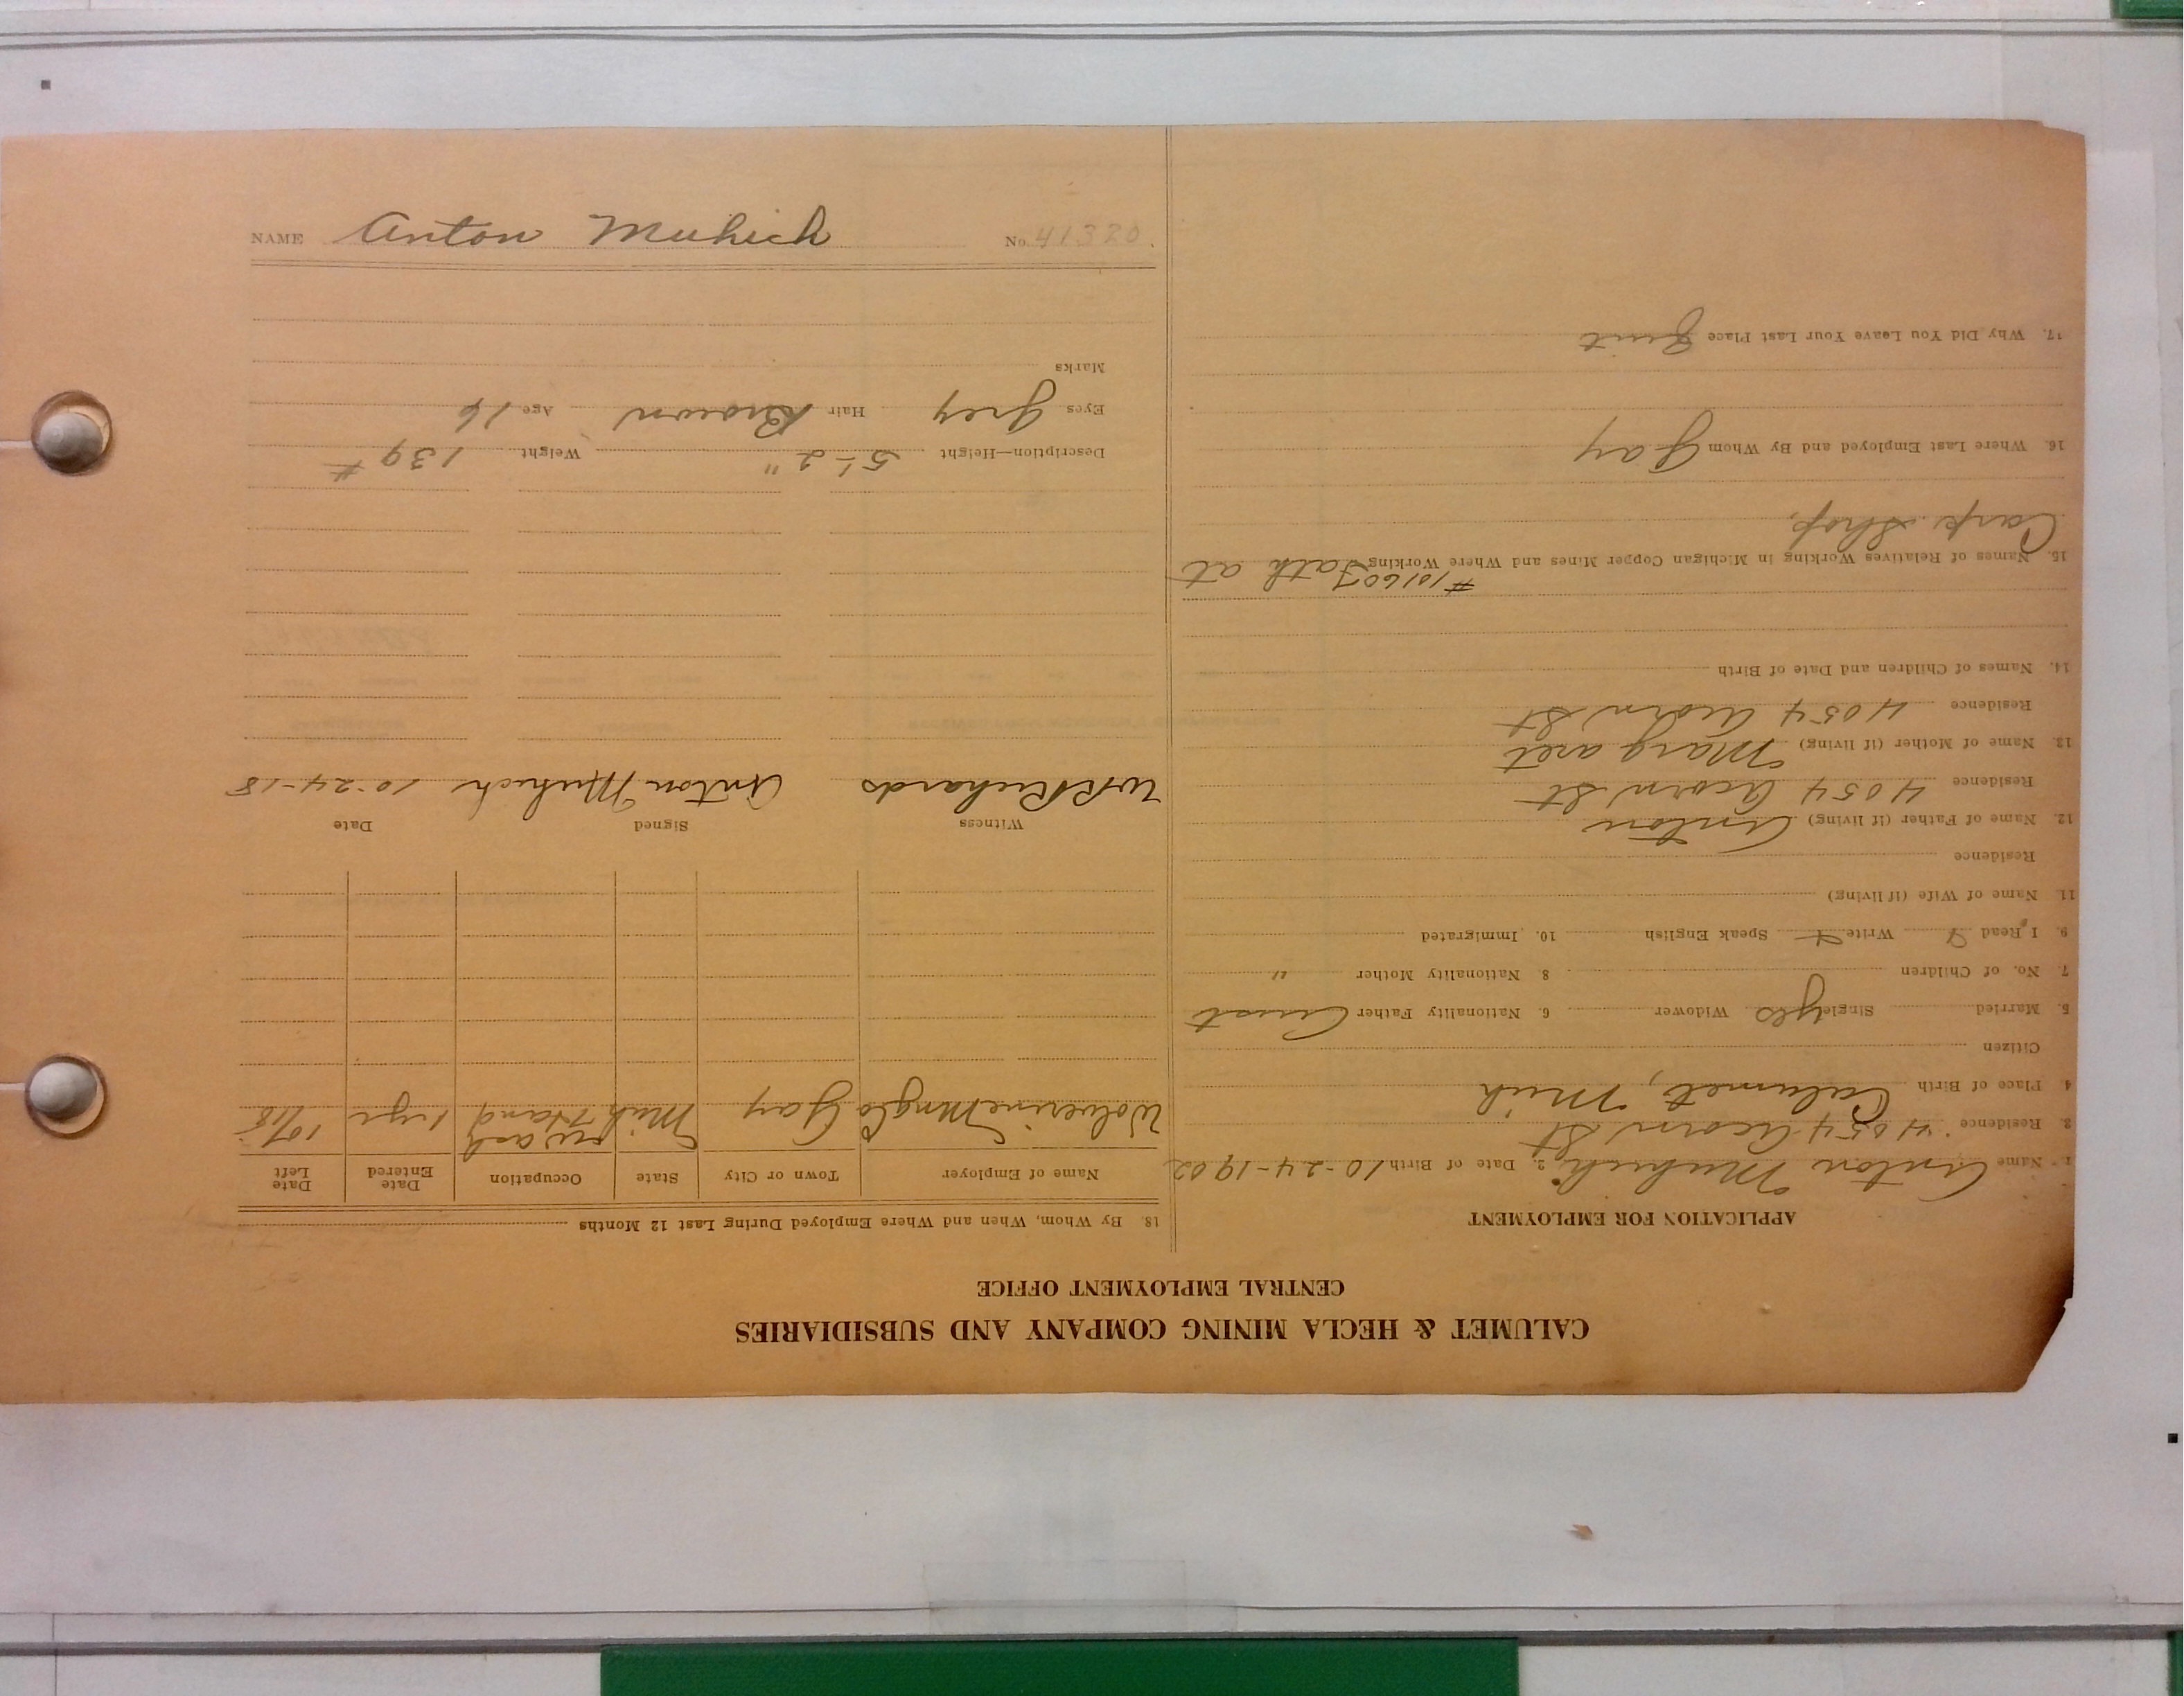 CALUMET & HECLA MINING COMPANY AND SUBSIDIARIES
CENTRAL EMPLOYMENT OFFICE
APPLICATION FOR EMPLOYMENT
1. Name Anton Muhich 2. Date of Birth 10-24-1902
3. Residence 4054 Acorn St
4. Place of Birth Calumet, Mich
Citizen
5. Married Single yes Widower 6. Nationality Father Aust
7. No. of Children 8. Nationality Mother "
9. I Read Write Speak English 10. Immigrated
11. Name of Wife (if living)
Residence
12. Name of Father (if living) Anton
Residence 4054 Acorn St
13. Name of Mother (if living) Margaret
Residence 4054 Acorn St
14. Names of Children and Date of Birth
15. Names of Relatives Working in Michigan Copper Mines and Where Working Fath at
Carp Shop.
16. Where Last Employed and By Whom Gay
17. Why Did You Leave Your Last Place Quit
18. By Whom, When and Where Employed During Last 12 Months
Name of Employer Town or City State Occupation Date Entered Date Left
Wolverine Gay Mich Wash Hand 1 yr 10/18
Witness Signed Date
WR Richards Anton Muhich 10-24-18
Description—Height 5'-2" Weight 139 #
Eyes Grey Hair Brown Age 16
Marks
NAME Anton Muhich No. 41320